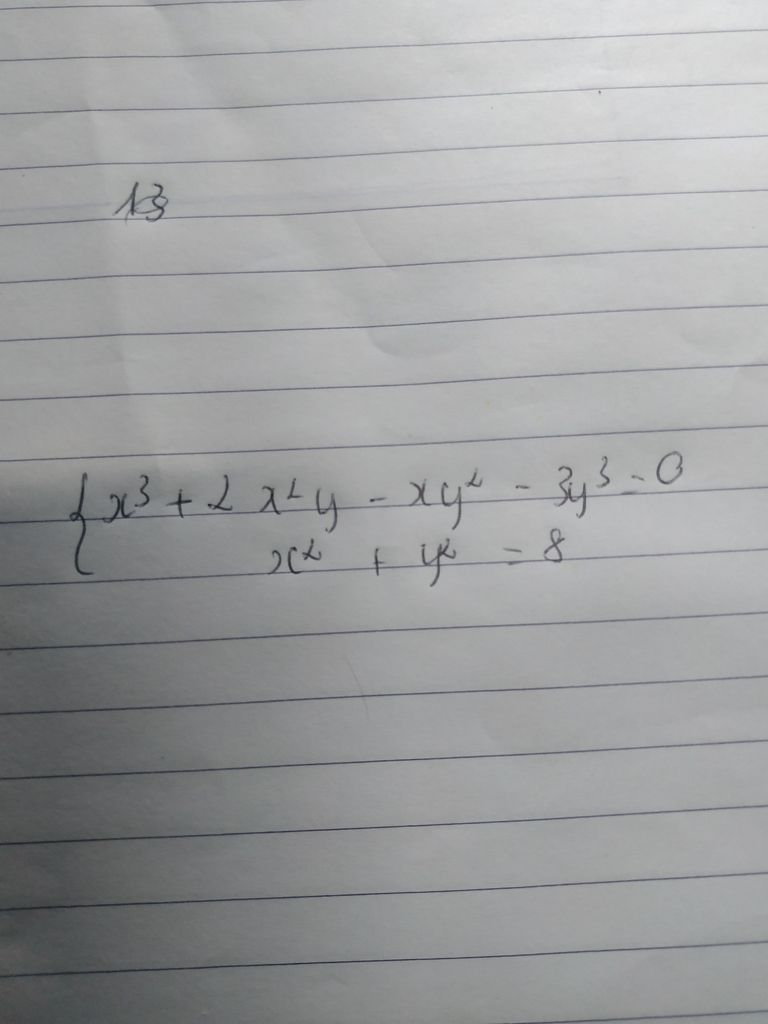 13
{ x³ + 2 x²y - xy² - 3y³ = 0
x² + y² = 8